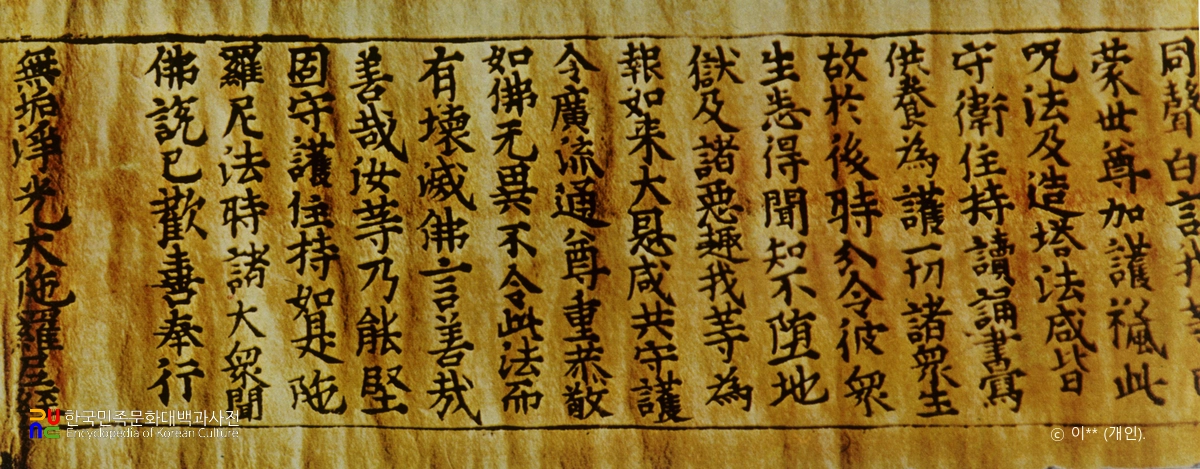 同聲白言我等
蒙世尊加護𥠢此
呪法及造塔法咸皆
守衛住持讀誦書寫
供養為護一切諸衆生
故於後時分令彼衆
生悉得聞知不墮地
獄及諸惡趣我等為
報如来大恩咸共守護
令廣流通尊重恭敬
如佛无異不令此法而
有壞滅佛言善哉
善哉汝等乃能堅
固守護住持如是陁
羅尼法時諸大衆聞
佛說已歡喜奉行
無垢淨光大陁羅尼經
한국민족문화대백과사전
Encyclopedia of Korean Culture
ⓒ 이** (개인).